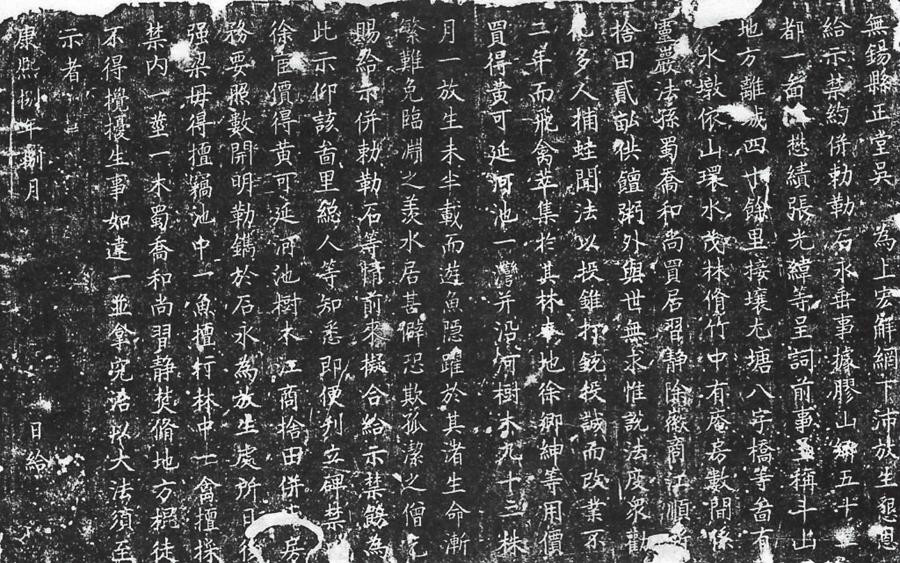 無錫縣正堂吳　為上宏解網下沛放生懇恩
給示禁約併勅勒石永垂事據膠山鄉五十
都一啚懋績張光緯等呈詞前事稱斗山
地方離城四十餘里接壤尤塘八字橋等啚有
水墩依山環水茂林脩竹中有庵房數間係
靈巖法孫蜀喬和尚買居習静除徽商江順所
捨田貳畝供饘粥外與世無求惟說法度衆勸
多人捕蛙聞法以投錐打銃投誠而改業不
二年而飛禽萃集於其林本地徐鄉紳等用價
買得黄可延河池一灣并沿河樹木九十三株
月一放生未半載而遊魚隱躍於其渚生命漸
繁難免臨淵之羨水居甚僻恐欺孤潔之僧乞
賜給示併勅勒石等情前來擬合給示禁飭為
此示仰該啚里總人等知悉即便刊立碑禁
徐宦價得黄可延河池樹木江商捨田併房
務要照數開明勒鐫於石永為放生處所日後
强梁毋得擅竊池中一魚擅行林中一禽擅採
禁内一莖一木蜀喬和尚習静焚脩地方棍徒
不得攪擾生事如違一並拿究治以大法須至
示者
康熙捌年捌月　日給